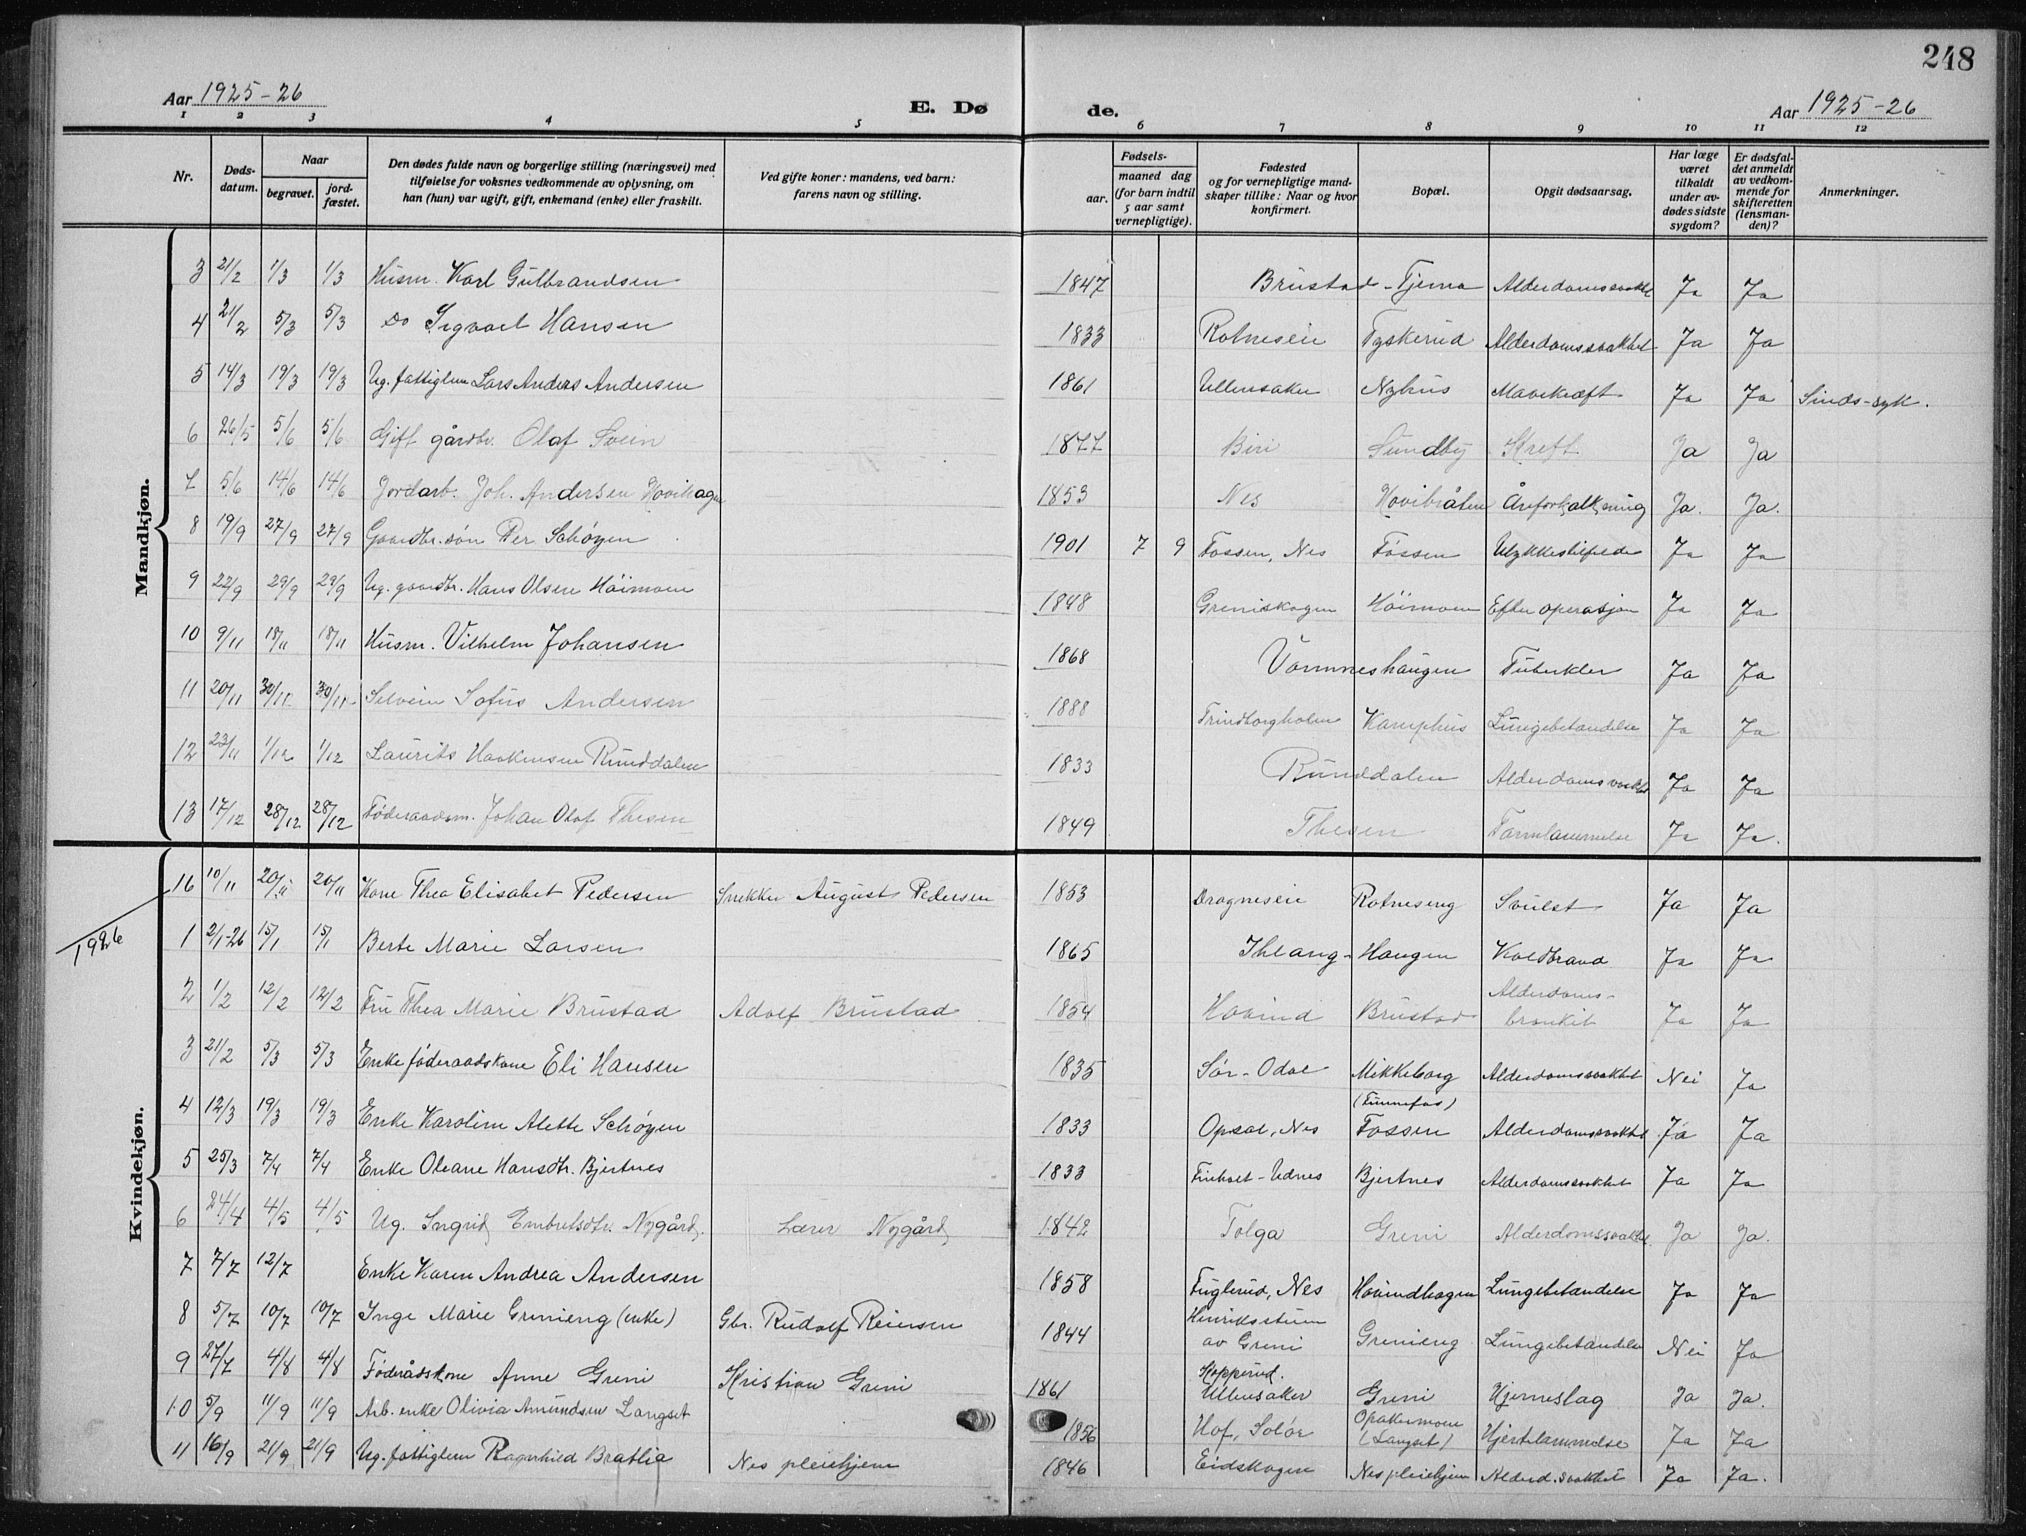 248
Aar 1925-26 E. Dø de. Aar 1925-26
1 2 3 4 5 6 7 8 9 10 11 12
Nr. Døds-datum. Naar begravet. jord-fæstet. Den dødes fulde navn og borgerlige stilling (næringsvei) med tilføielse for voksnes vedkommende av oplysning, om han (hun) var ugift, gift, enkemand (enke) eller fraskilt. Ved gifte koner: mandens, ved barn: farens navn og stilling. Fødsels- aar. maaned dag (for barn indtil 5 aar samt vernepligtige). Fødested og for vernepligtige mand-skaper tillike: Naar og hvor konfirmert. Bopæl. Opgit dødsaarsag. Har læge været tilkaldt under av-dødes sidste sygdom? Er dødsfal-det anmeldt av vedkom-mende for skifteretten (lensman-den)? Anmerkninger.
Mandkjøn.
3 21/2 1/3 1/3 Husm. Karl Gulbrandsen 1847 Brustad - Tjerna Alderdomssvakhet Ja Ja
4 21/2 5/3 5/3 Do Sigvart Hansen 1833 Rotneseie Tyskerud Alderdomssvakhet Ja Ja
5 14/3 19/3 19/3 Ug. fattiglem Lars Anders Andersen 1861 Ullensaker Nyhus Mavekræft Ja Ja Sinds-syk.
6 26/5 5/6 5/6 Gift gårdbr. Olaf Svein 1877 Biri Sundby Kreft Ja Ja
7 5/6 14/6 14/6 Jordarb. Joh. Andersen Hovihagen 1853 Nes Hovibråten Åreforkalkning Ja. Ja.
8 19/9 27/9 27/9 Gaardbr.søn Per Schøyen 1901 7 9 Fossen, Nes Fossen Ulykkestilfelde Ja Ja
9 22/9 29/9 29/9 Ug. gaardbr. Hans Olsen Høimoen 1848 Greniskogen Høimoen Efter operasjon Ja Ja
10 9/11 18/11 18/11 Husm. Vilhelm Johansen 1868 Vormneshaugen Tuberkler Ja Ja
11 20/11 30/11 30/11 Selveier Sofus Andersen 1888 Trindborgholen Kamphus Lungebetændelse Ja Ja
12 23/11 1/12 1/12 Laurits Haakensen Runddalen 1833 Runddalen Alderdomssvakhet Ja Ja
13 17/12 28/12 28/12 Føderaadsm. Johan Olaf Thesen 1849 Thesen Tarmlammelse Ja Ja.
Kvindekjøn.
16 10/11 20/11 20/11 Kone Thea Elisabet Pedersen Snekker August Pedersen 1853 Dragneseie Rotneseng Svulst Ja Ja
1926
1 2/1-26 15/1 15/1 Berte Marie Larsen 1865 Ihlang - Haugen Koldbrand Ja Ja
2 1/2 12/2 12/2 Fru Thea Marie Brustad Adolf Brustad 1854 Hovind Brustad Alderdoms-bronkit Ja Ja
3 21/2 5/3 5/3 Enke føderaadskone Eli Hansen 1835 Sør-Odal Mikkelborg (Funnefos) Alderdomssvakhet Nei Ja
4 12/3 19/3 19/3 Enke Karoline Alette Schøyen 1833 Opsal, Nes Fossen Alderdomssvakhet Ja Ja
5 25/3 7/4 7/4 Enke Oleane Hansdtr. Bjertnes 1833 Friholt-Udnes Bjertnes Alderdomssvakhet Ja Ja
6 24/4 4/5 4/5 Ug. Ingrid Embretsdtr. Nygård. Lærer Nygård 1842 Tolga Greni Alderdomssvakhet Ja Ja.
7 7/7 12/7 Enke Karen Andrea Andersen 1858 Fuglerud, Nes Hovindhagen Lungebetændelse Ja Ja
8 5/7 10/7 10/7 Inge Marie Grenieng (enke) Gbr. Rudolf Reiersen 1844 Henriksstuen av Greni Grenieng Lungebetændelse Nei Ja
9 27/7 4/8 4/8 Føderådskone Anne Greni Kristian Greni 1861 Kopperud. Ullensaker Greni Hjerneslag Ja Ja.
10 5/9 11/9 11/9 Arb. enke Olivia Amundsen Langset 1856 Hof, Solør Opakermoen (Langset) Hjertelammelse Ja Ja
11 16/9 21/9 21/9 Ug. fattiglem Ragnhild Bratlia Nes pleiehjem 1846 Eidskogen Nes pleiehjem Alderd.svakhet Ja Ja.